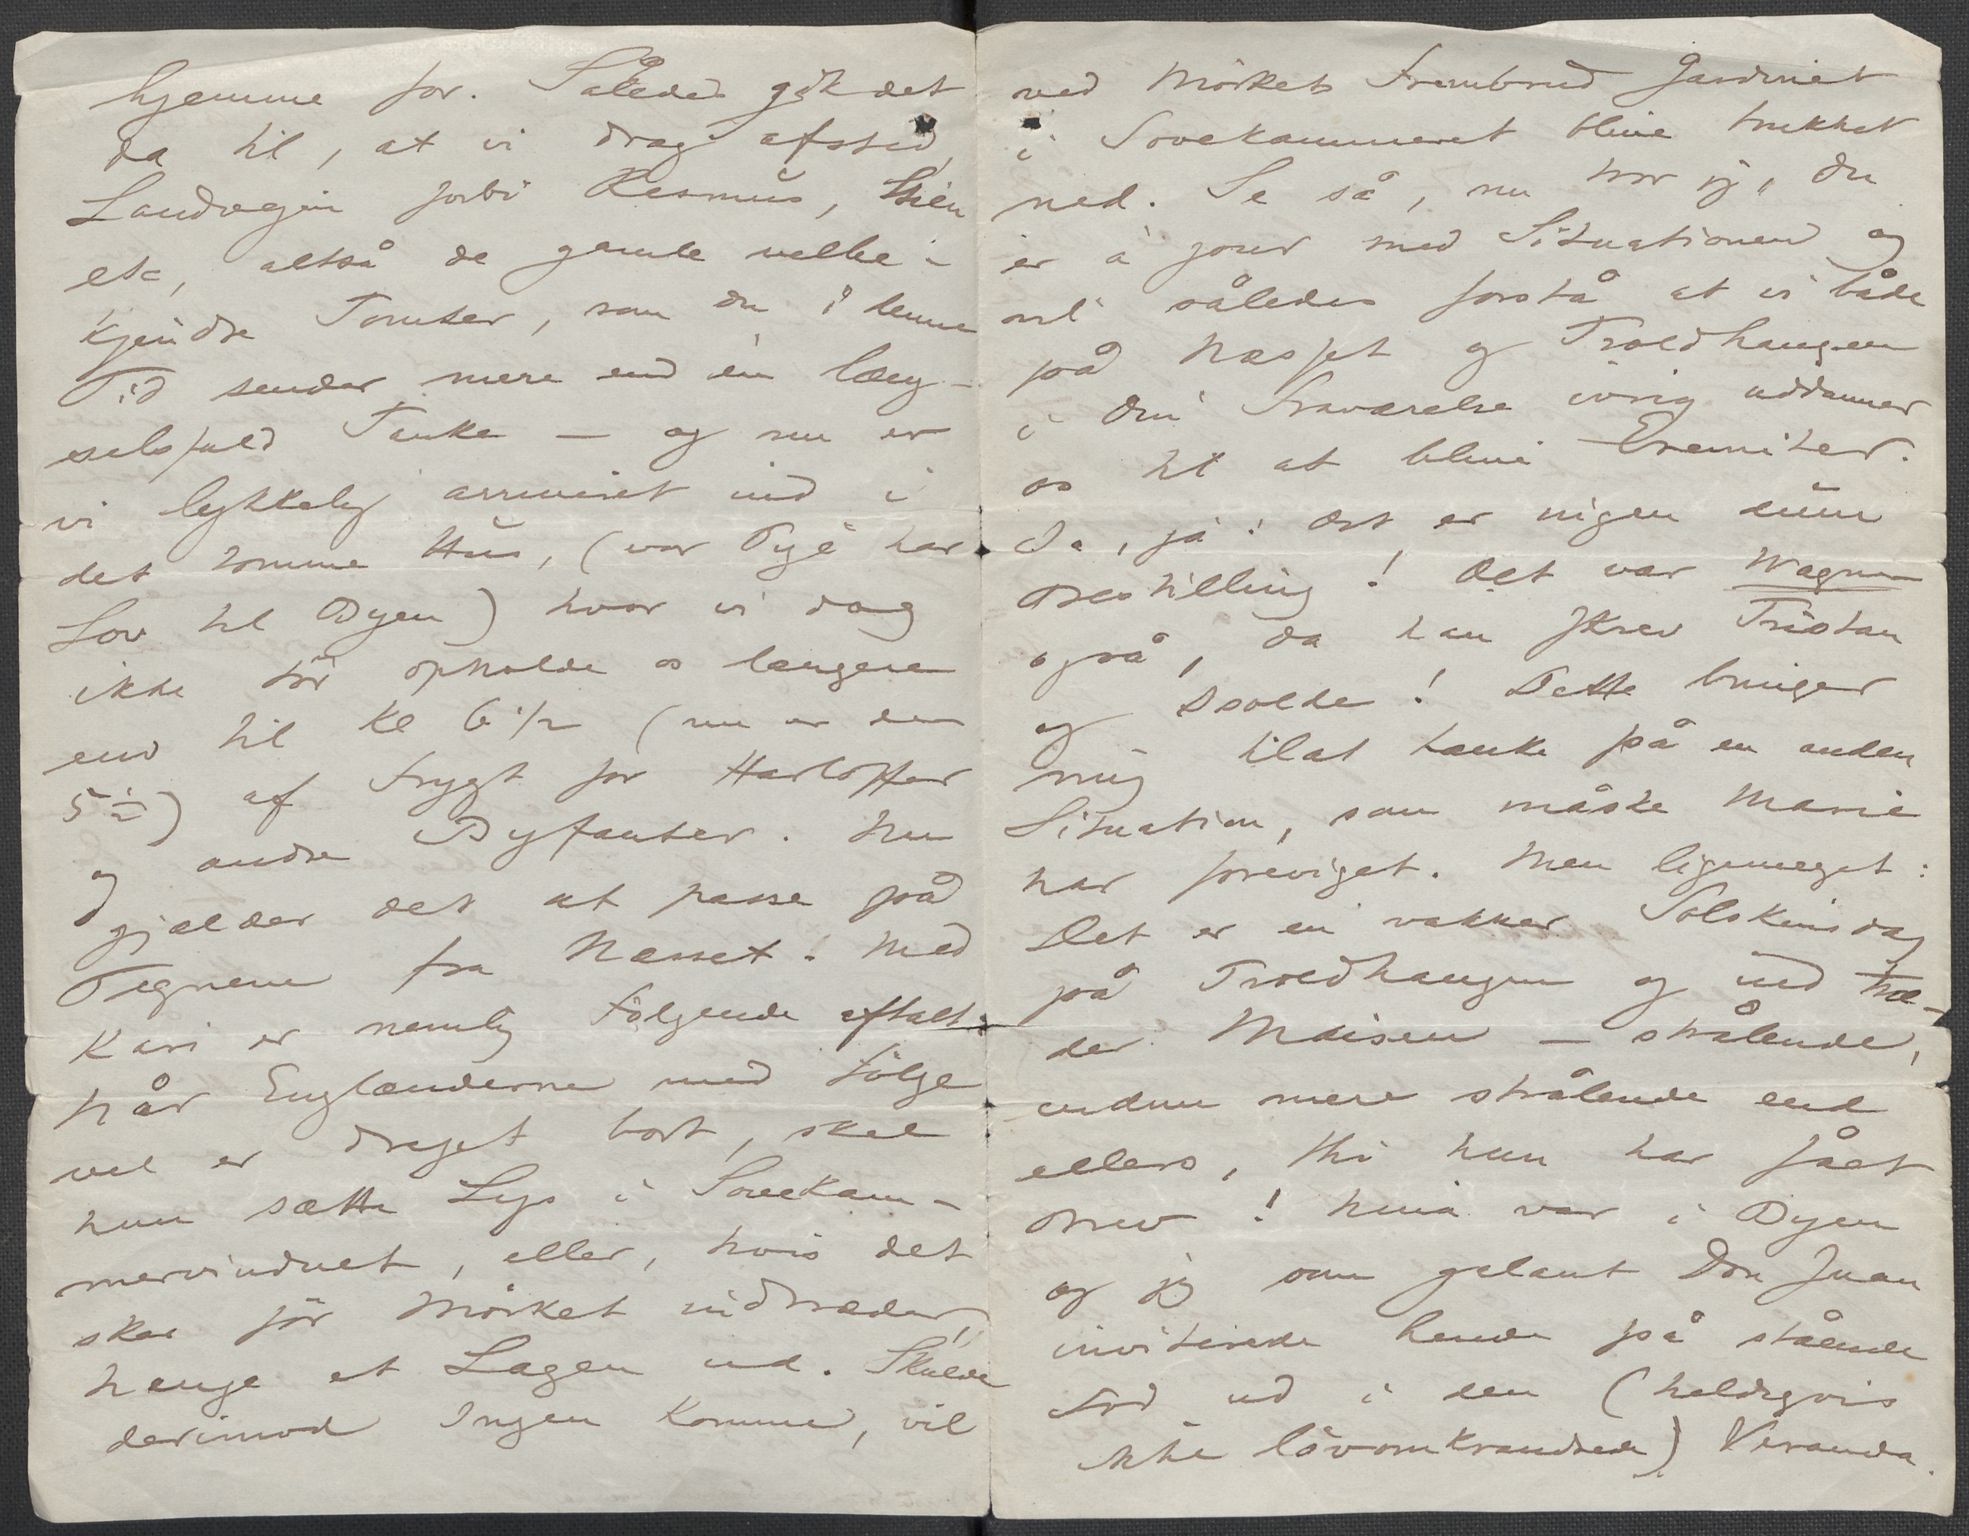 hjemme for. Således gik det
da til, at vi drog afsted,
Landvejen forbi Rasmus,
etc, altså de gamle velbe-
kjendte Tomter, som du i denne
Tid sender mere end én læng-
selsfuld Tanke — og nu er
vi lykkelig arriveret ind i
det tomme Hus, (vor Pige har
Lov til Byen) hvor vi dog
ikke tör opholde os længere
end til Kl 6 1/2 (nu er den
5 1/2) af Frygt for Harloffer
og andre Byfanter. Nu
gjælder det at passe på
Tegnene fra Næsset! Med
Kari er nemlig Fölgende aftalt:
Når Englænderne med Fölge
vel er draget bort, skal
hun sætte Lys i Sovekam-
mervinduet, eller, hvis det
sker för Mörket indtræder,
hænge et Lagen ud. Skulde
derimod Ingen komme, vil
ved Mörkets Frembrud Gardinet
i Sovekammeret blive trukket
ned. Se så, nu tror jeg, du
er à jour med Situationen og
vil således forstå at vi både
på Næsset og Troldhaugen
i din Fraværelse ivrig uddanner
os til at blive Eremiter.
Ja, ja! Det er ingen
Bestilling! Det var Wagner
også, da han skrev Tristan
og Isolde! Dette bringer
mig til at tænke på en anden
Situation, som måske Marie
har foreviget. Men ligemeget:
Det er en vakker Solskinsdag
på Troldhaugen og ind træ-
der Maisen — strålende,
endnu mere strålende end
ellers, thi hun har fået
Brev! Nina var i Byen
og jeg som galant Don Juan
inviterede hende på stående
Fod ud i den (heldigvis
ikke lövomkrandsede) Veranda.